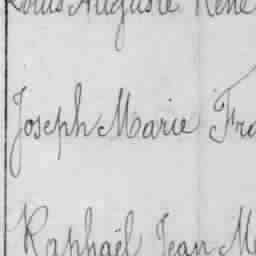 Louis Auguste René
Joseph Marie Fra
Raphaël Jean M